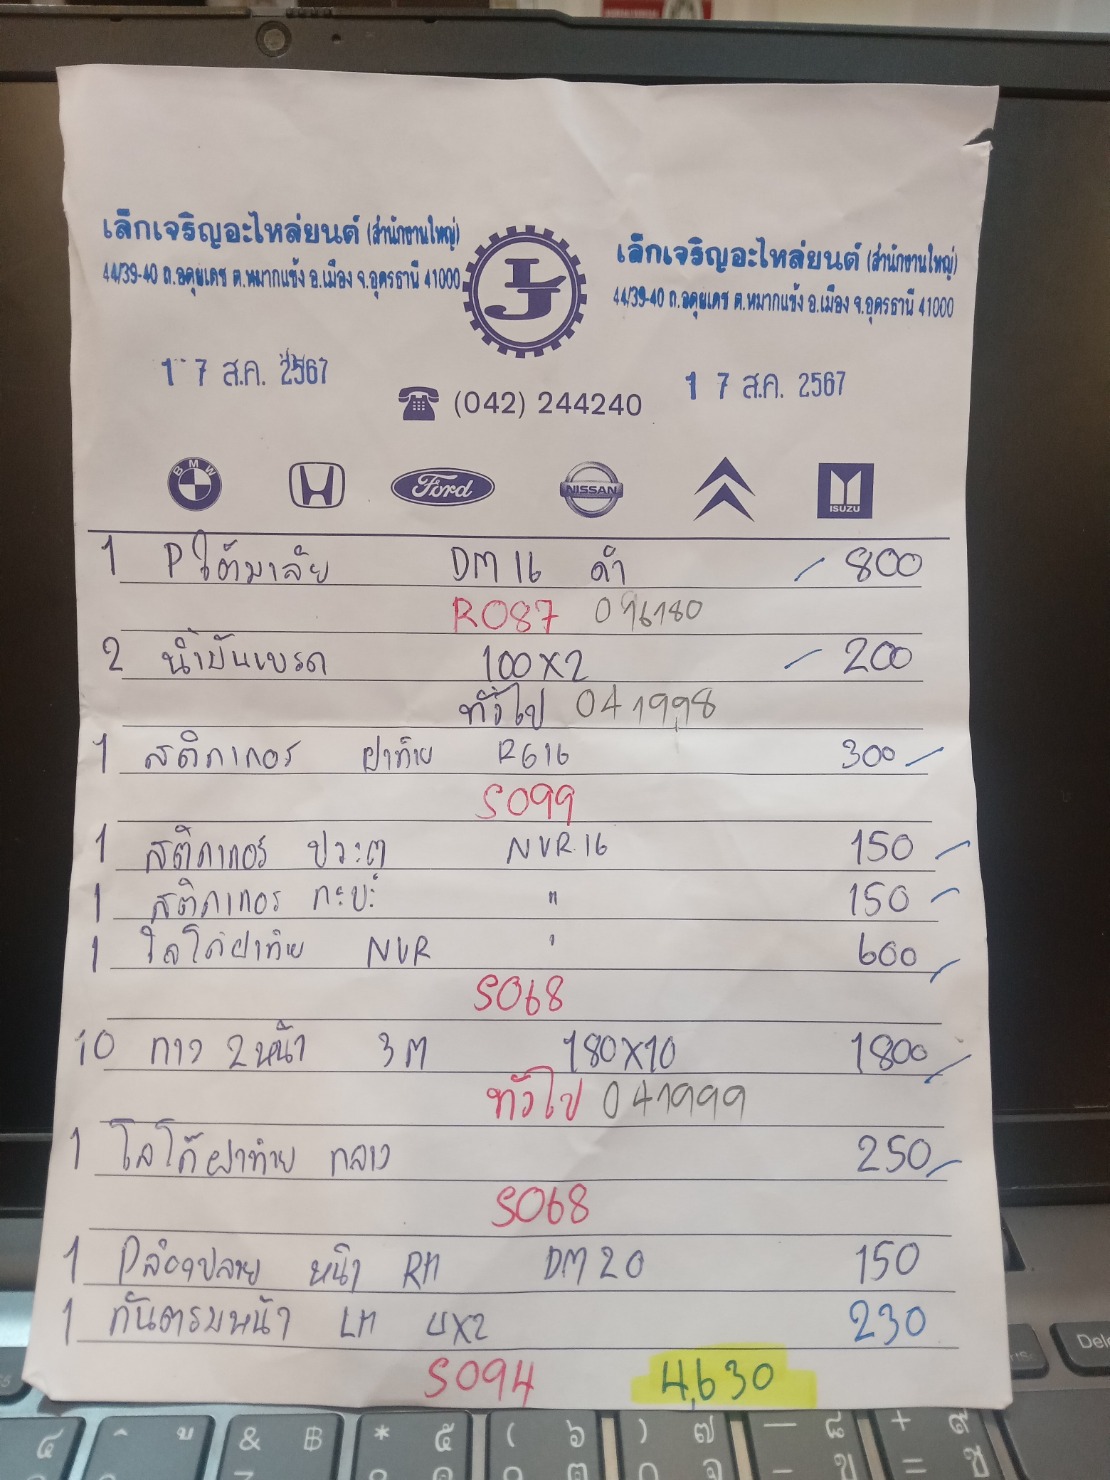 เล็กเจริญอะไหล่ยนต์ (สำนักงานใหญ่)
44/39-40 ถ.อดุยเดช ต.หมากแข้ง อ.เมือง จ.อุดรธานี 41000
LJ
เล็กเจริญอะไหล่ยนต์ (สำนักงานใหญ่)
44/39-40 ถ.อดุยเดช ต.หมากแข้ง อ.เมือง จ.อุดรธานี 41000
17 ส.ค. 2567
(042) 244240
17 ส.ค. 2567
BMW
Ford
NISSAN
ISUZU
1 P ใต้มาลัย DM16 ดำ 800
R087 096180
2 น้ำมันเบรค 100X2 200
ทั่วไป 041998
1 สติกเกอร ฝาท้าย RG16 300
S099
1 สติกเกอร์ ประตู NVR.16 150
1 สติกเกอร กะบะ " 150
1 โลโก้ฝาท้าย NVR ' 600
S068
10 กาว 2 หน้า 3 m 180X10 1800
ทั่วไป 041999
1 โลโก้ฝาท้าย กลาง 250
S068
1 หน้า RH DM20 150
1 กันตรมหน้า LH 4X2 230
S094 4,630
Del
๔ ^ & ฿ * ๕ ( ๖ ) ๗ — ๘ + ๙